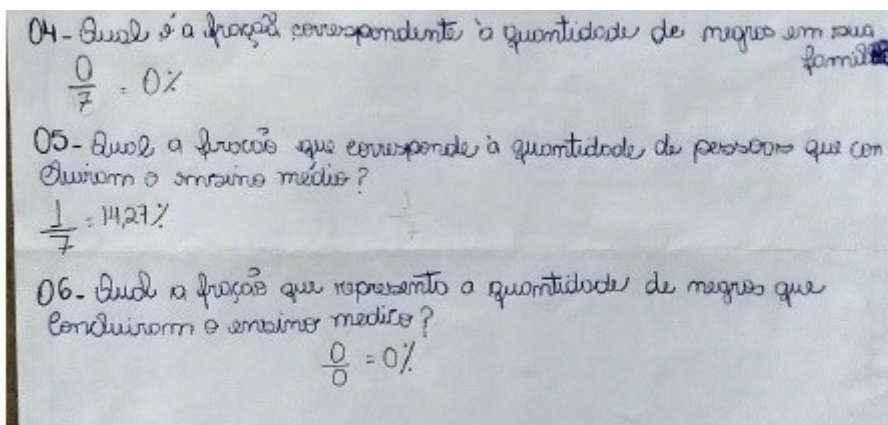 04- Qual é a fração correspondente à quantidade de negros em sua
família
0/7 = 0%
05- Qual a fração que corresponde à quantidade de pessoas que con
cluiram o ensino médio?
1/7 = 14,27% 1/7
06- Qual a fração que representa a quantidade de negros que
concluiram o ensino medico?
0/0 = 0%